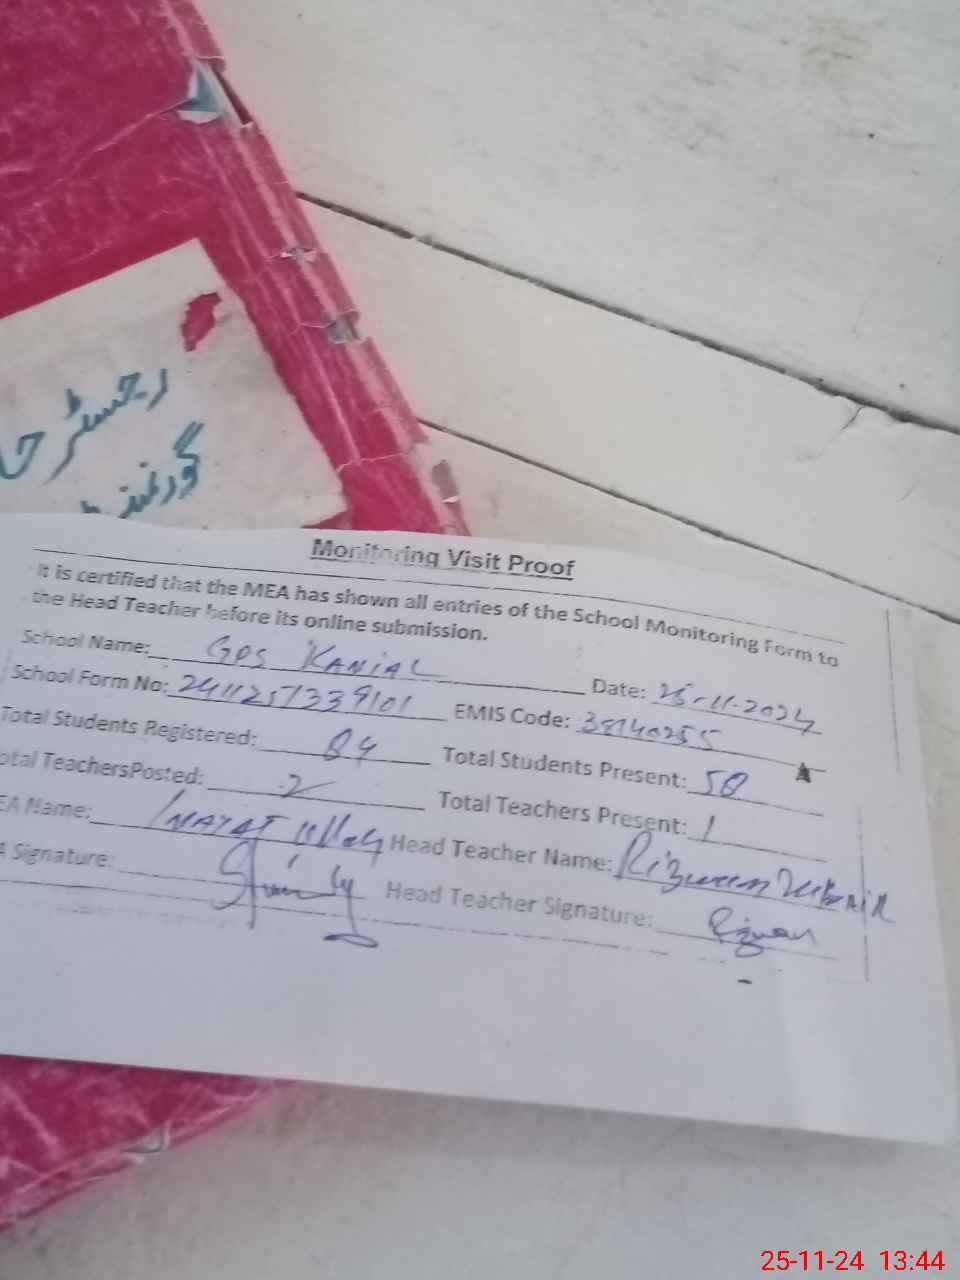 رجسٹر حا
گورنمنٹ
Monitoring Visit Proof
It is certified that the MEA has shown all entries of the School Monitoring Form to
the Head Teacher before its online submission.
School Name: GPS KANIAL Date: 25-11-2024
School Form No: 2411251339101 EMIS Code: 38140255
Total Students Registered: 84 Total Students Present: 58
otal TeachersPosted: 2 Total Teachers Present: 1
EA Name: INAYAT Ullah Head Teacher Name: Rizwan
A Signature: Head Teacher Signature: Rizwan
25-11-24 13:44